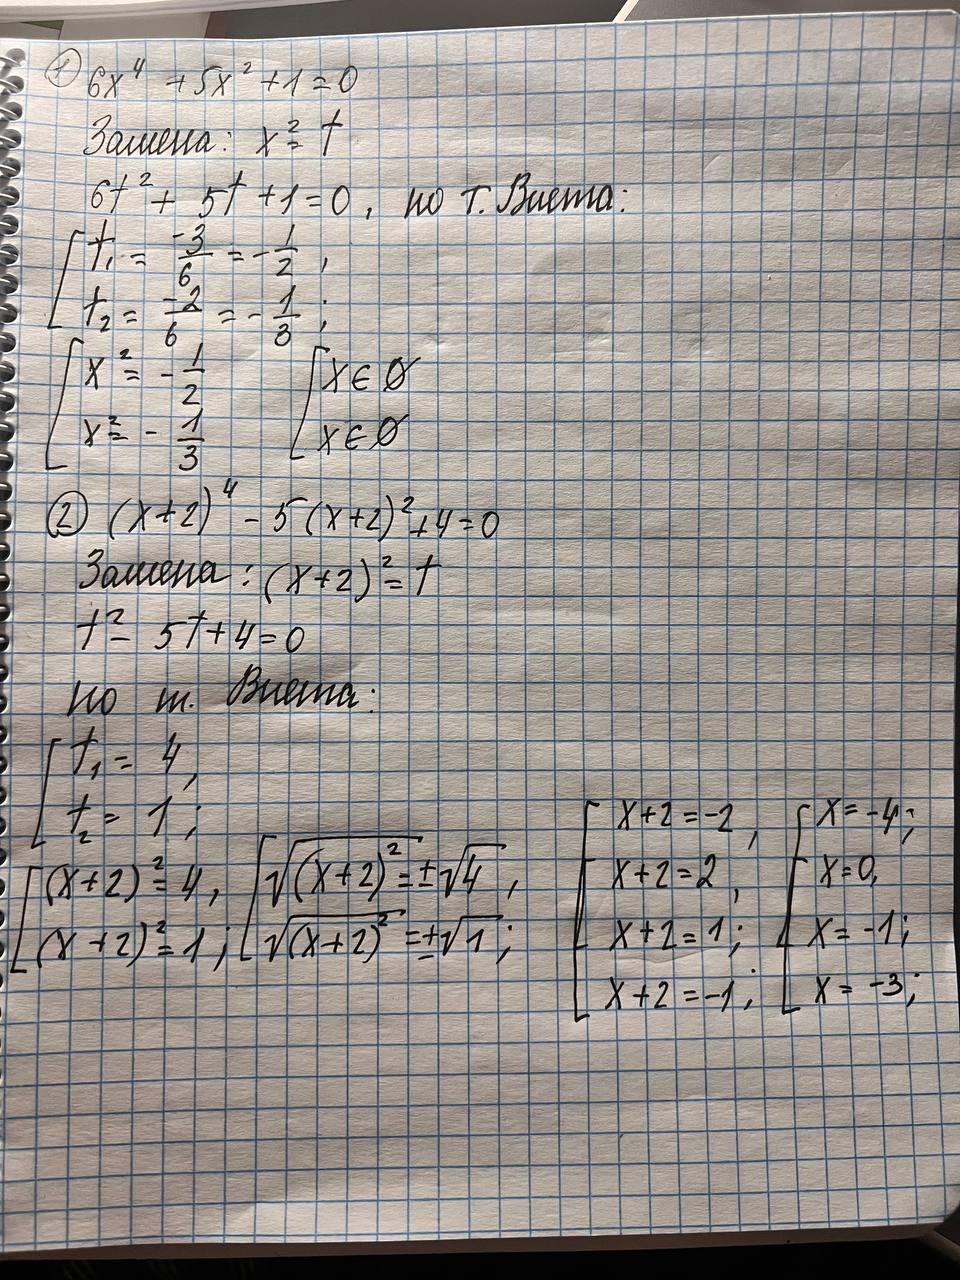 ① 6x⁴ + 5x² + 1 = 0
Замена: x² = t
6t² + 5t + 1 = 0, по т. Виета:
[ t₁ = -3/6 = -1/2,
[ t₂ = -2/6 = -1/3;
[ x² = -1/2 [ x ∈ ∅
[ x² = -1/3 [ x ∈ ∅
② (x+2)⁴ - 5(x+2)² + 4 = 0
Замена: (x+2)² = t
t² - 5t + 4 = 0
по т. Виета:
[ t₁ = 4,
[ t₂ = 1;
[ (x+2)² = 4, [ √(x+2)² = ±√4,
[ (x+2)² = 1; [ √(x+2)² = ±√1;
[ x+2 = -2, [ x = -4;
[ x+2 = 2, [ x = 0,
[ x+2 = 1; [ x = -1;
[ x+2 = -1; [ x = -3;